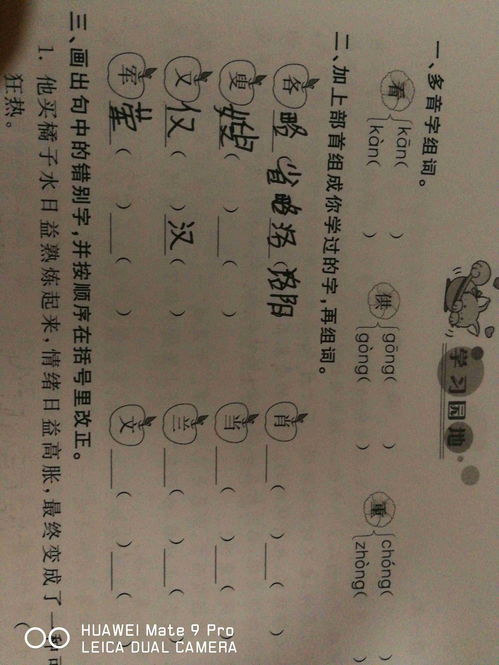 学习园地
一、多音字组词。
看 kān( ) 供 gōng( ) 重 chóng(
kàn( ) gòng( ) zhòng(
二、加上部首组成你学过的字,再组词。
各 略(省略) 洛(洛阳) 肖 ( ) ( )
叟 嫂( ) ( ) 当 ( ) ( )
又 仅( ) 汉( ) 兰 ( ) ( )
军 ( ) ( ) 文 ( ) ( )
三、画出句中的错别字,并按顺序在括号里改正。
1. 他买橘子水日益熟炼起来,情绪日益高胀,最终变成了一种
狂热。 (
HUAWEI Mate 9 Pro
LEICA DUAL CAMERA